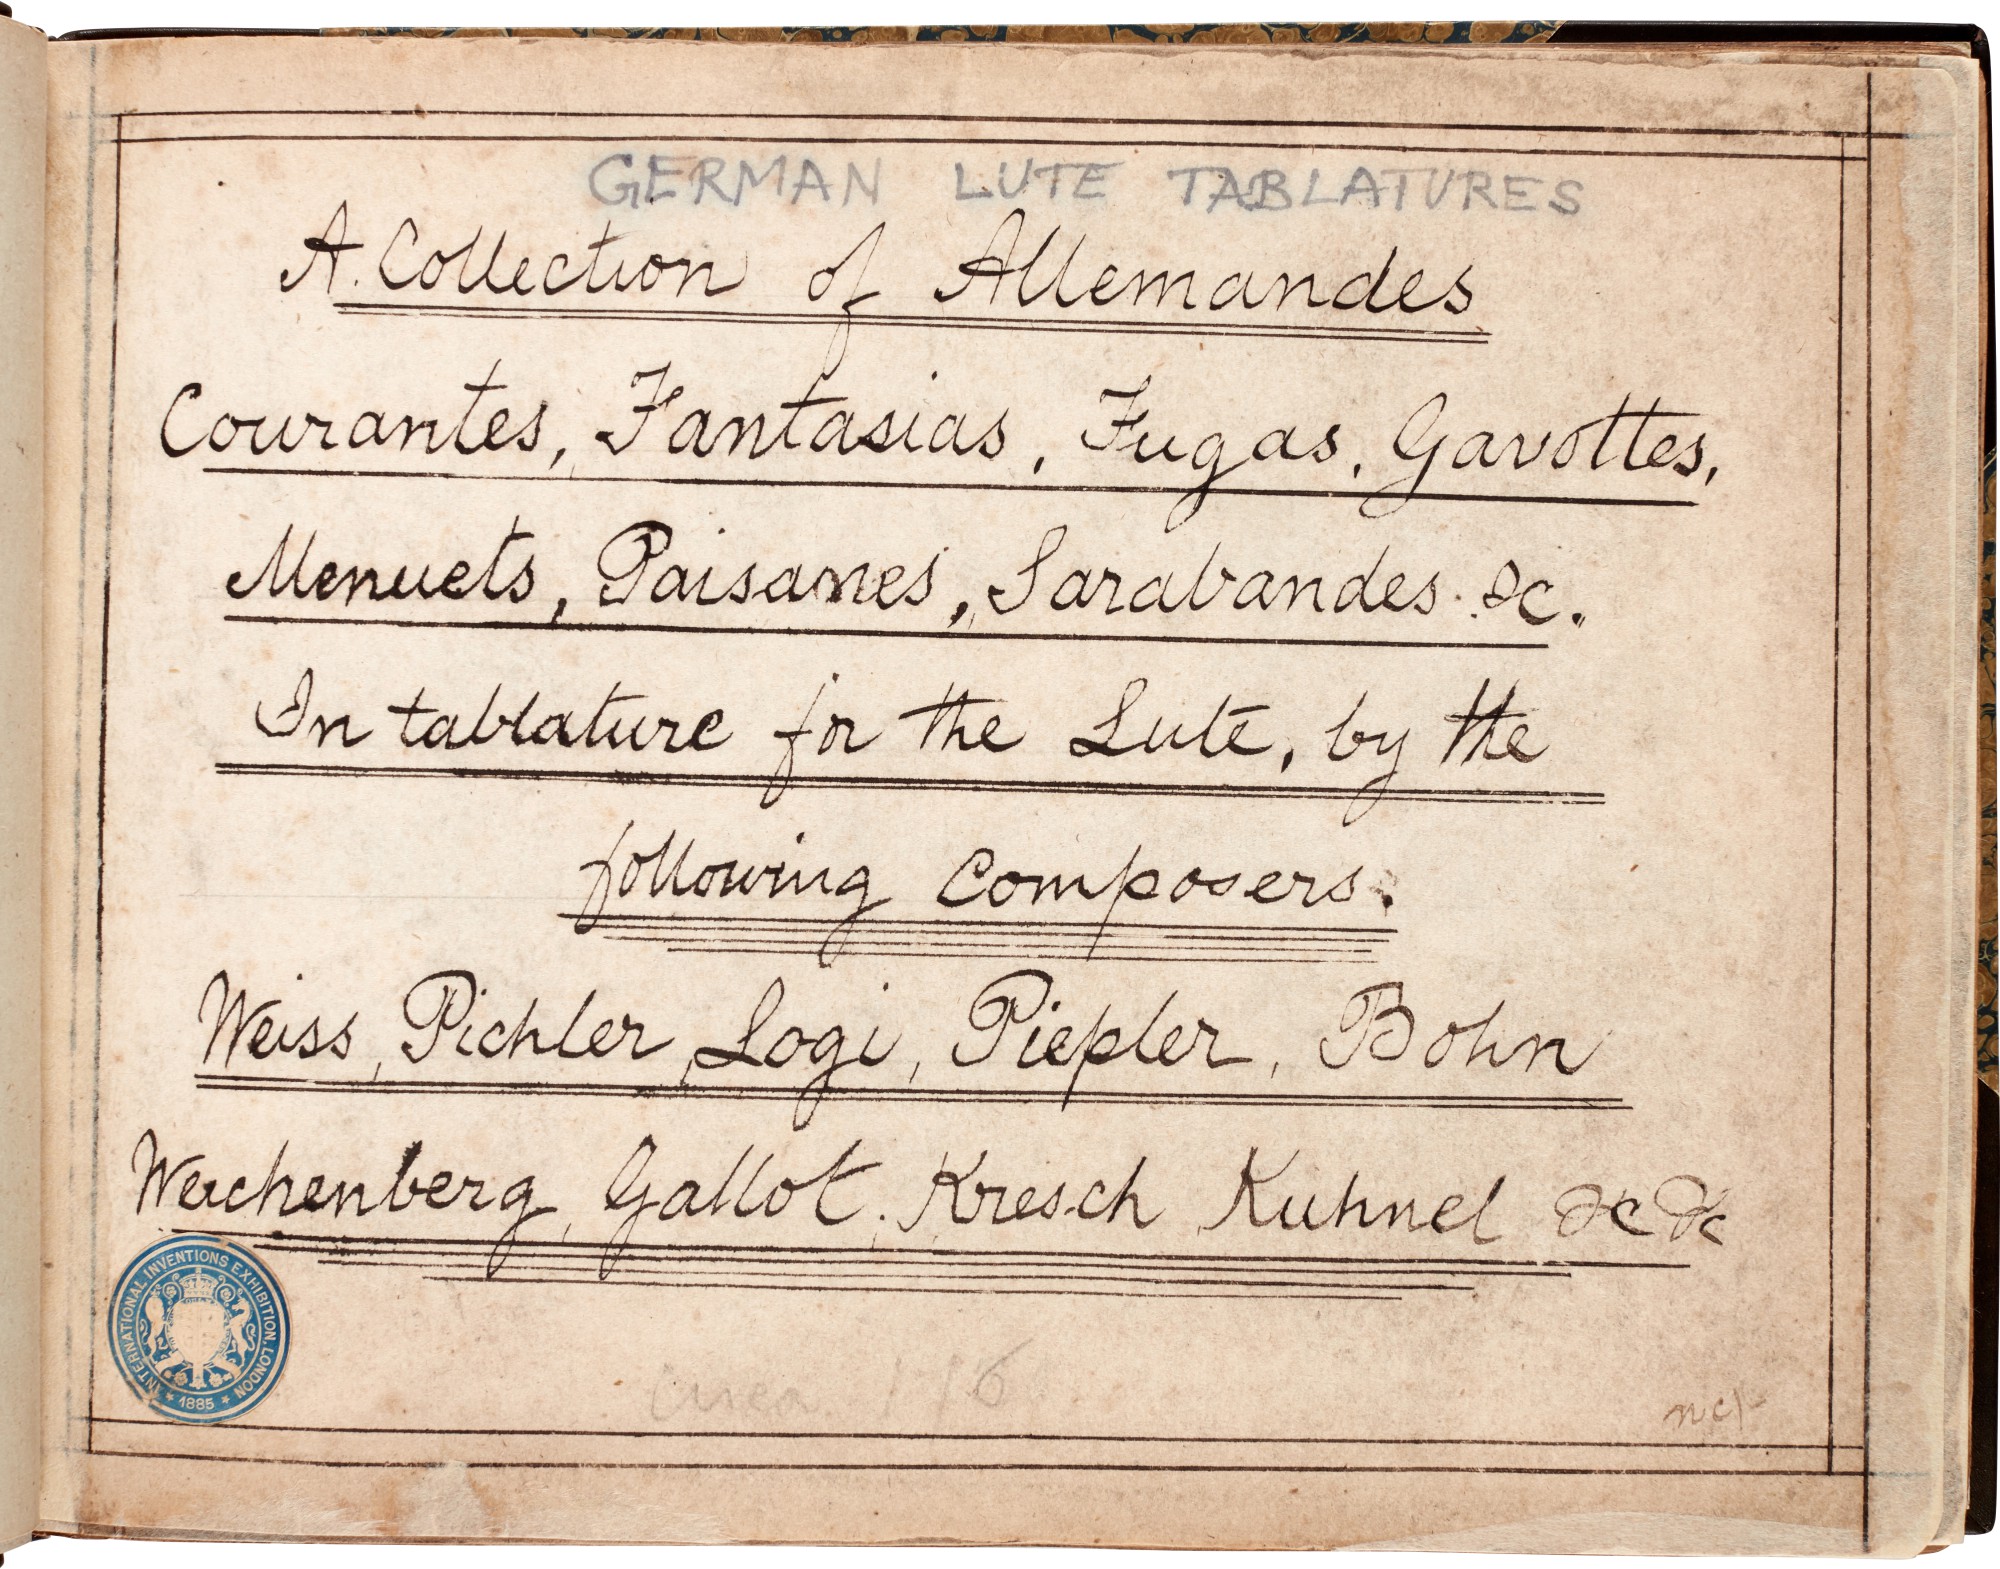 GERMAN LUTE TABLATURES
A Collection of Allemandes
Courantes, Fantasias, Fugas, Gavottes,
Menuets, Paisanes, Sarabandes &c.
In tablature for the Lute, by the
following Composers.
Weiss, Pichler, Logi, Piepler, Bohn
Weichenberg, Gallot, Kresch Kuhnel &c &c
INTERNATIONAL INVENTIONS EXHIBITION, LONDON
* 1885 *